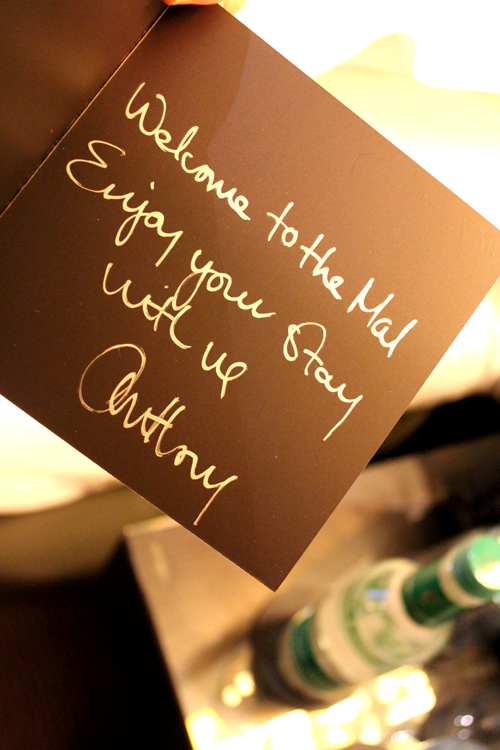 Welcome to the Mal
Enjoy your stay
with us
Anthony